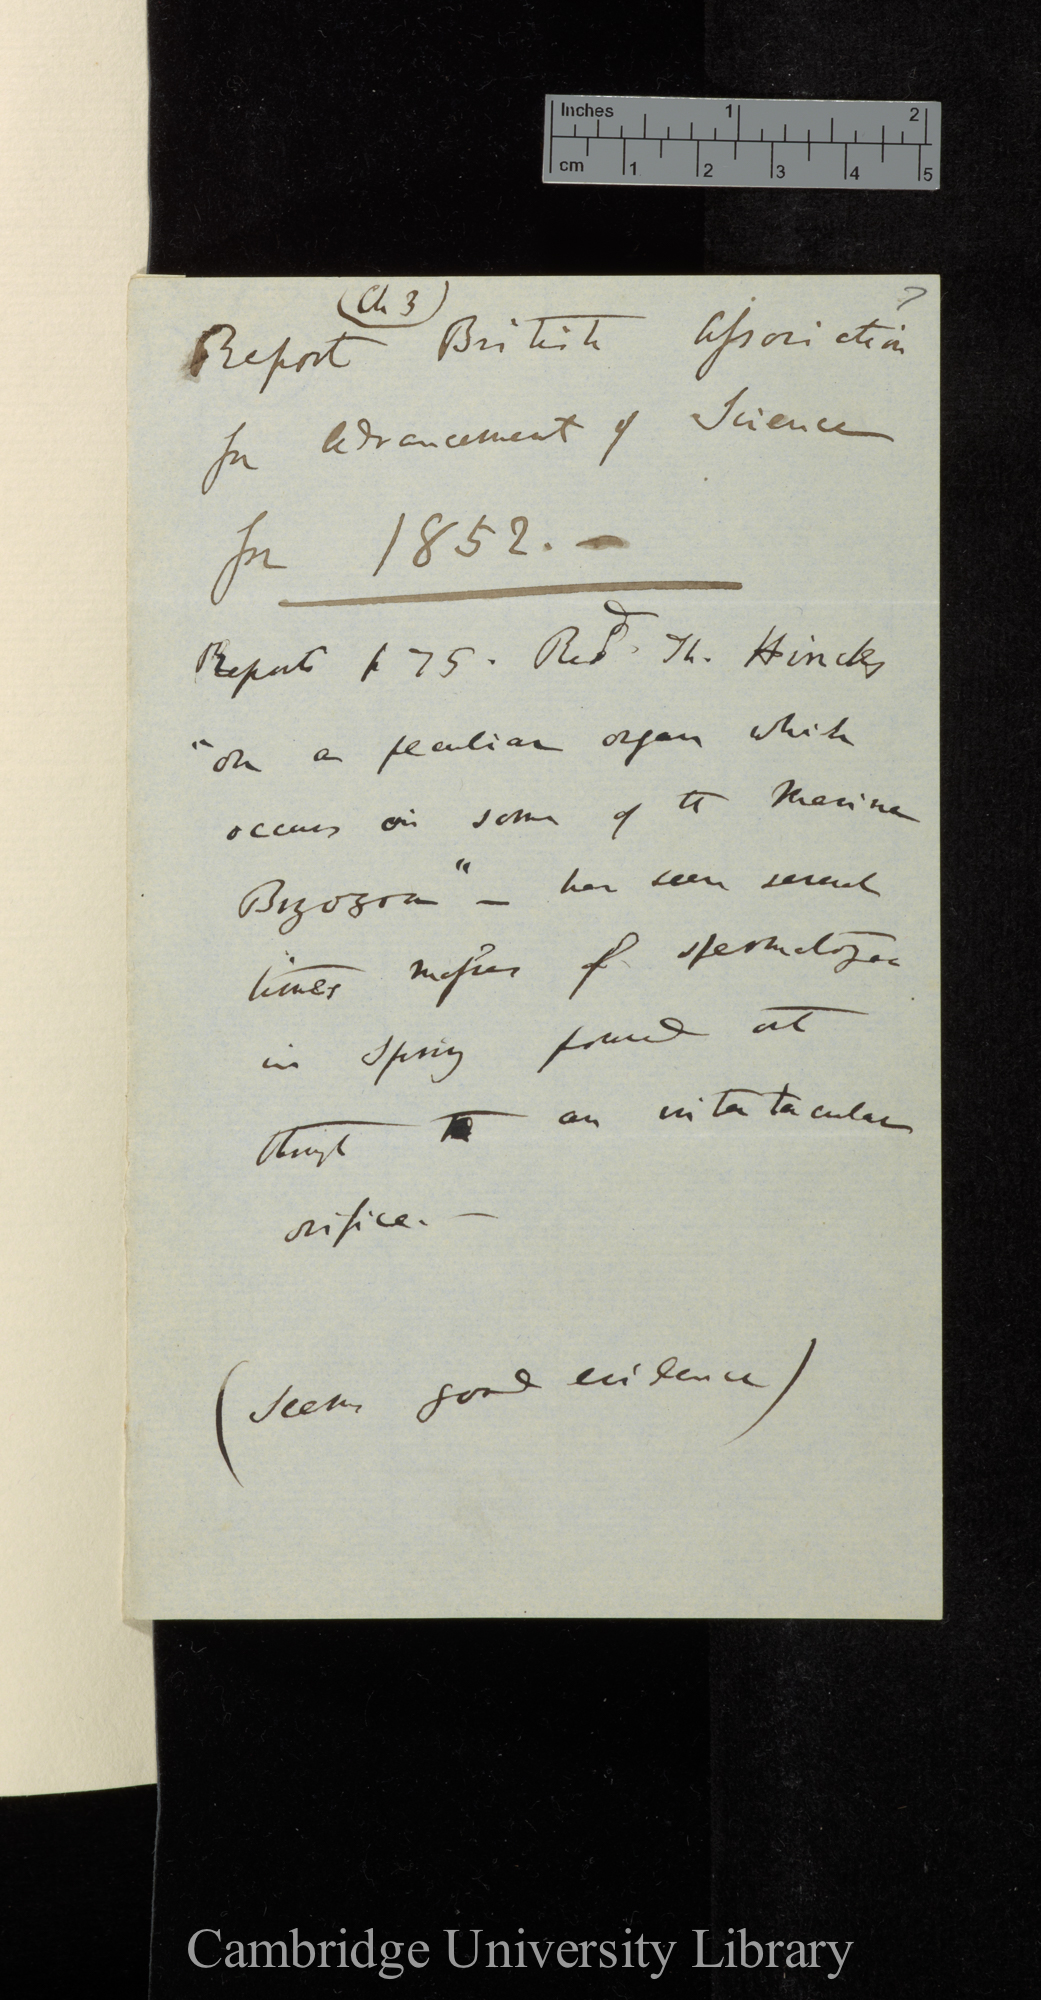 Inches 1 2
cm 1 2 3 4 5
(Ch 3) 7
Report British Association
for Advancement of Science
for 1852. —
Reports p 75. Revd. Th. Hincks
"on a peculiar organ which
occurs in some of the Marine
Bryozoa" — has seen several
times masses of spermatozoa
in spring poured out
through an intertentacular
orifice. —
(Seems good evidence)
Cambridge University Library